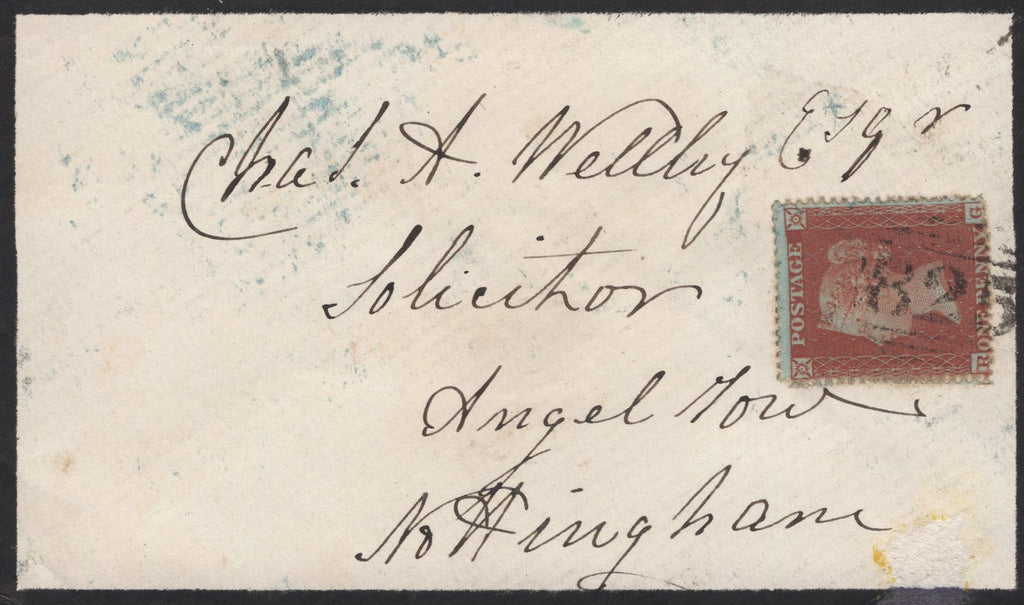 Chas. A. Wellby Esqr
Solicitor
Angel Row
Nottingham
POSTAGE
ONE PENNY
R G